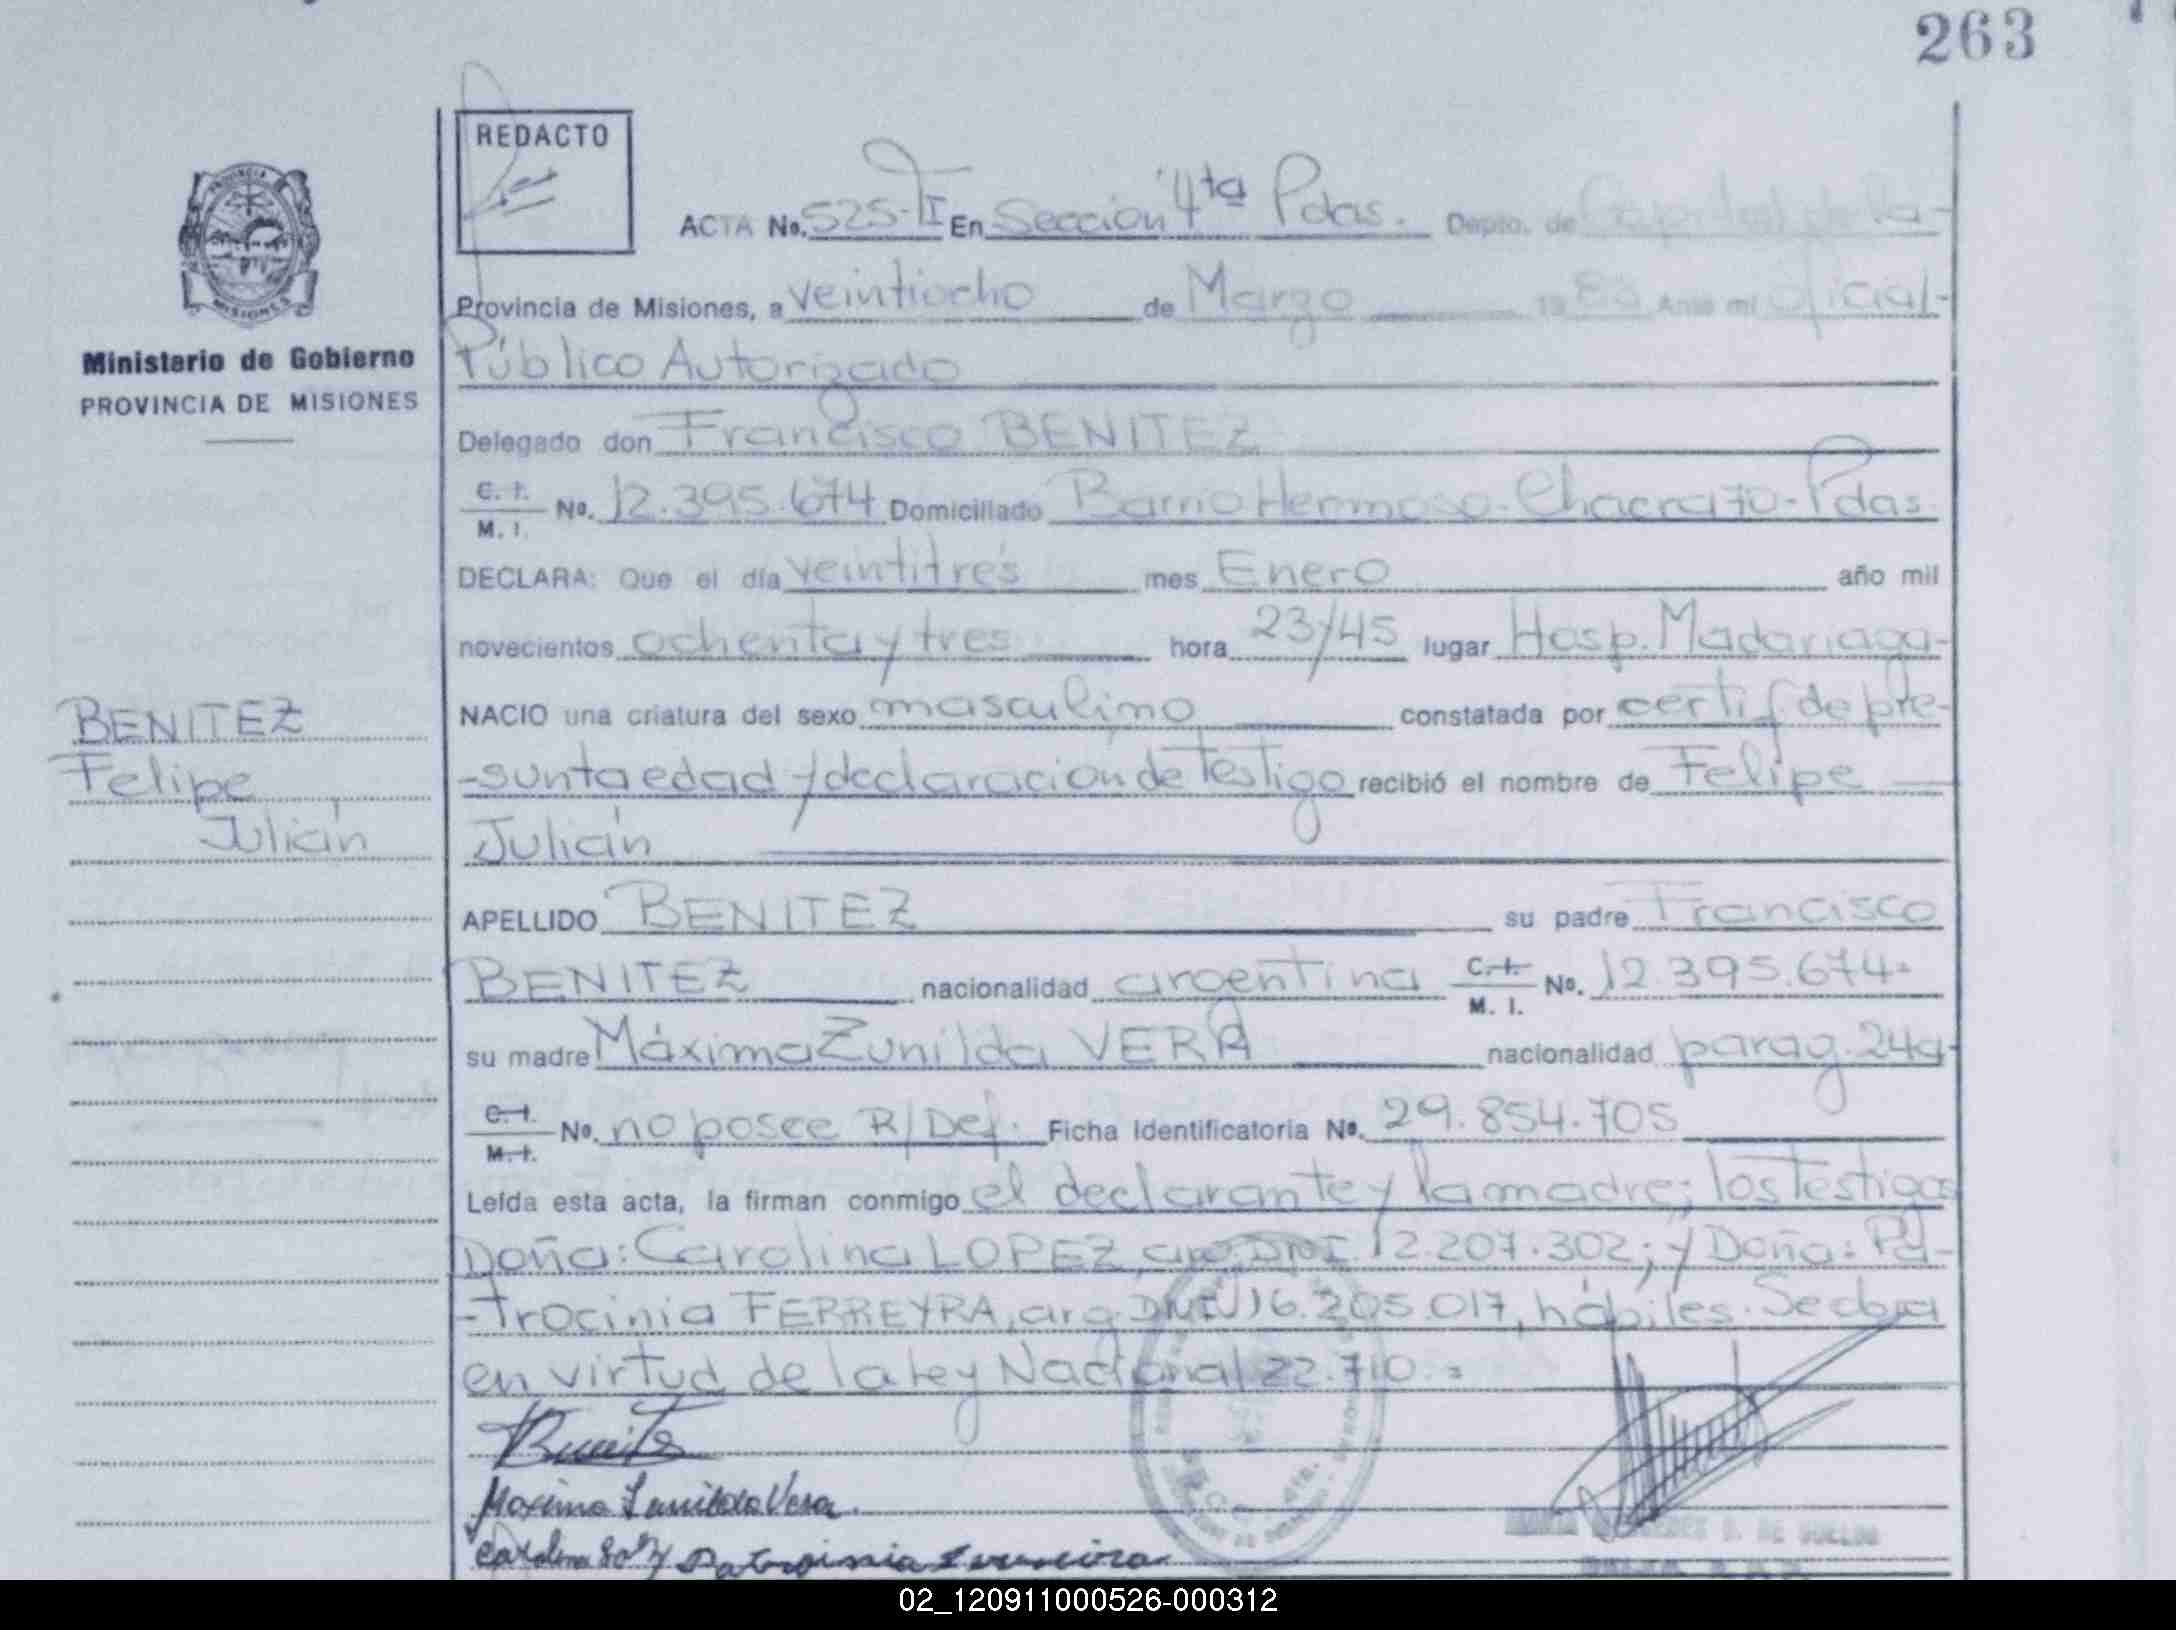 263
REDACTO
PROVINCIA
MISIONES
Ministerio de Gobierno
PROVINCIA DE MISIONES
ACTA No. 525-TI En Sección 4ta Pdas. Depto. de Capital de la-
Provincia de Misiones, a veintiocho de Marzo 19 Ante mi oficial-
Público Autorizado
Delegado don Francisco BENITEZ
C. I. M. I. No. 12.395.674 Domiciliado Barrio Hermoso-Chacra 70-Pdas.
DECLARA: Que el día veintitrés mes Enero año mil
novecientos ochenta y tres hora 23/45 lugar Hosp. Madariaga-
NACIO una criatura del sexo masculino constatada por certif de pre-
-sunta edad y declaración de Testigo recibió el nombre de Felipe
Julián
APELLIDO BENITEZ su padre Francisco
BENITEZ nacionalidad argentina C. I. M. I. No. 12.395.674-
su madre Máxima Zunilda VERA nacionalidad parag. 24a-
C. I. M. I. No. no posee R/Def. Ficha Identificatoria No. 29.854.705
Leída esta acta, la firman conmigo el declarante y la madre; los Testigos
Doña: Carolina LOPEZ, arg. DNI. 12.207.302; y Doña: Pa-
-trocinia FERREYRA, arg. DNI. 16.205.017, hábiles. Se labra
en virtud de la Ley Nacional 22.710.=
BENITEZ
Felipe
Julián
Maxima Zunilda Vera
02_120911000526-000312